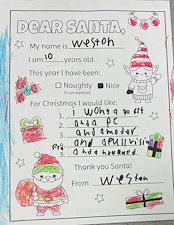 DEAR SANTA,
My name is weston
I am 10 years old.
This year I have been:
Naughty Nice
(I can explain!)
For Christmas I would like:
1. i wont a
2. and a PC
3. and a
4. and a
5. and a
Thank you Santa!
From Weston